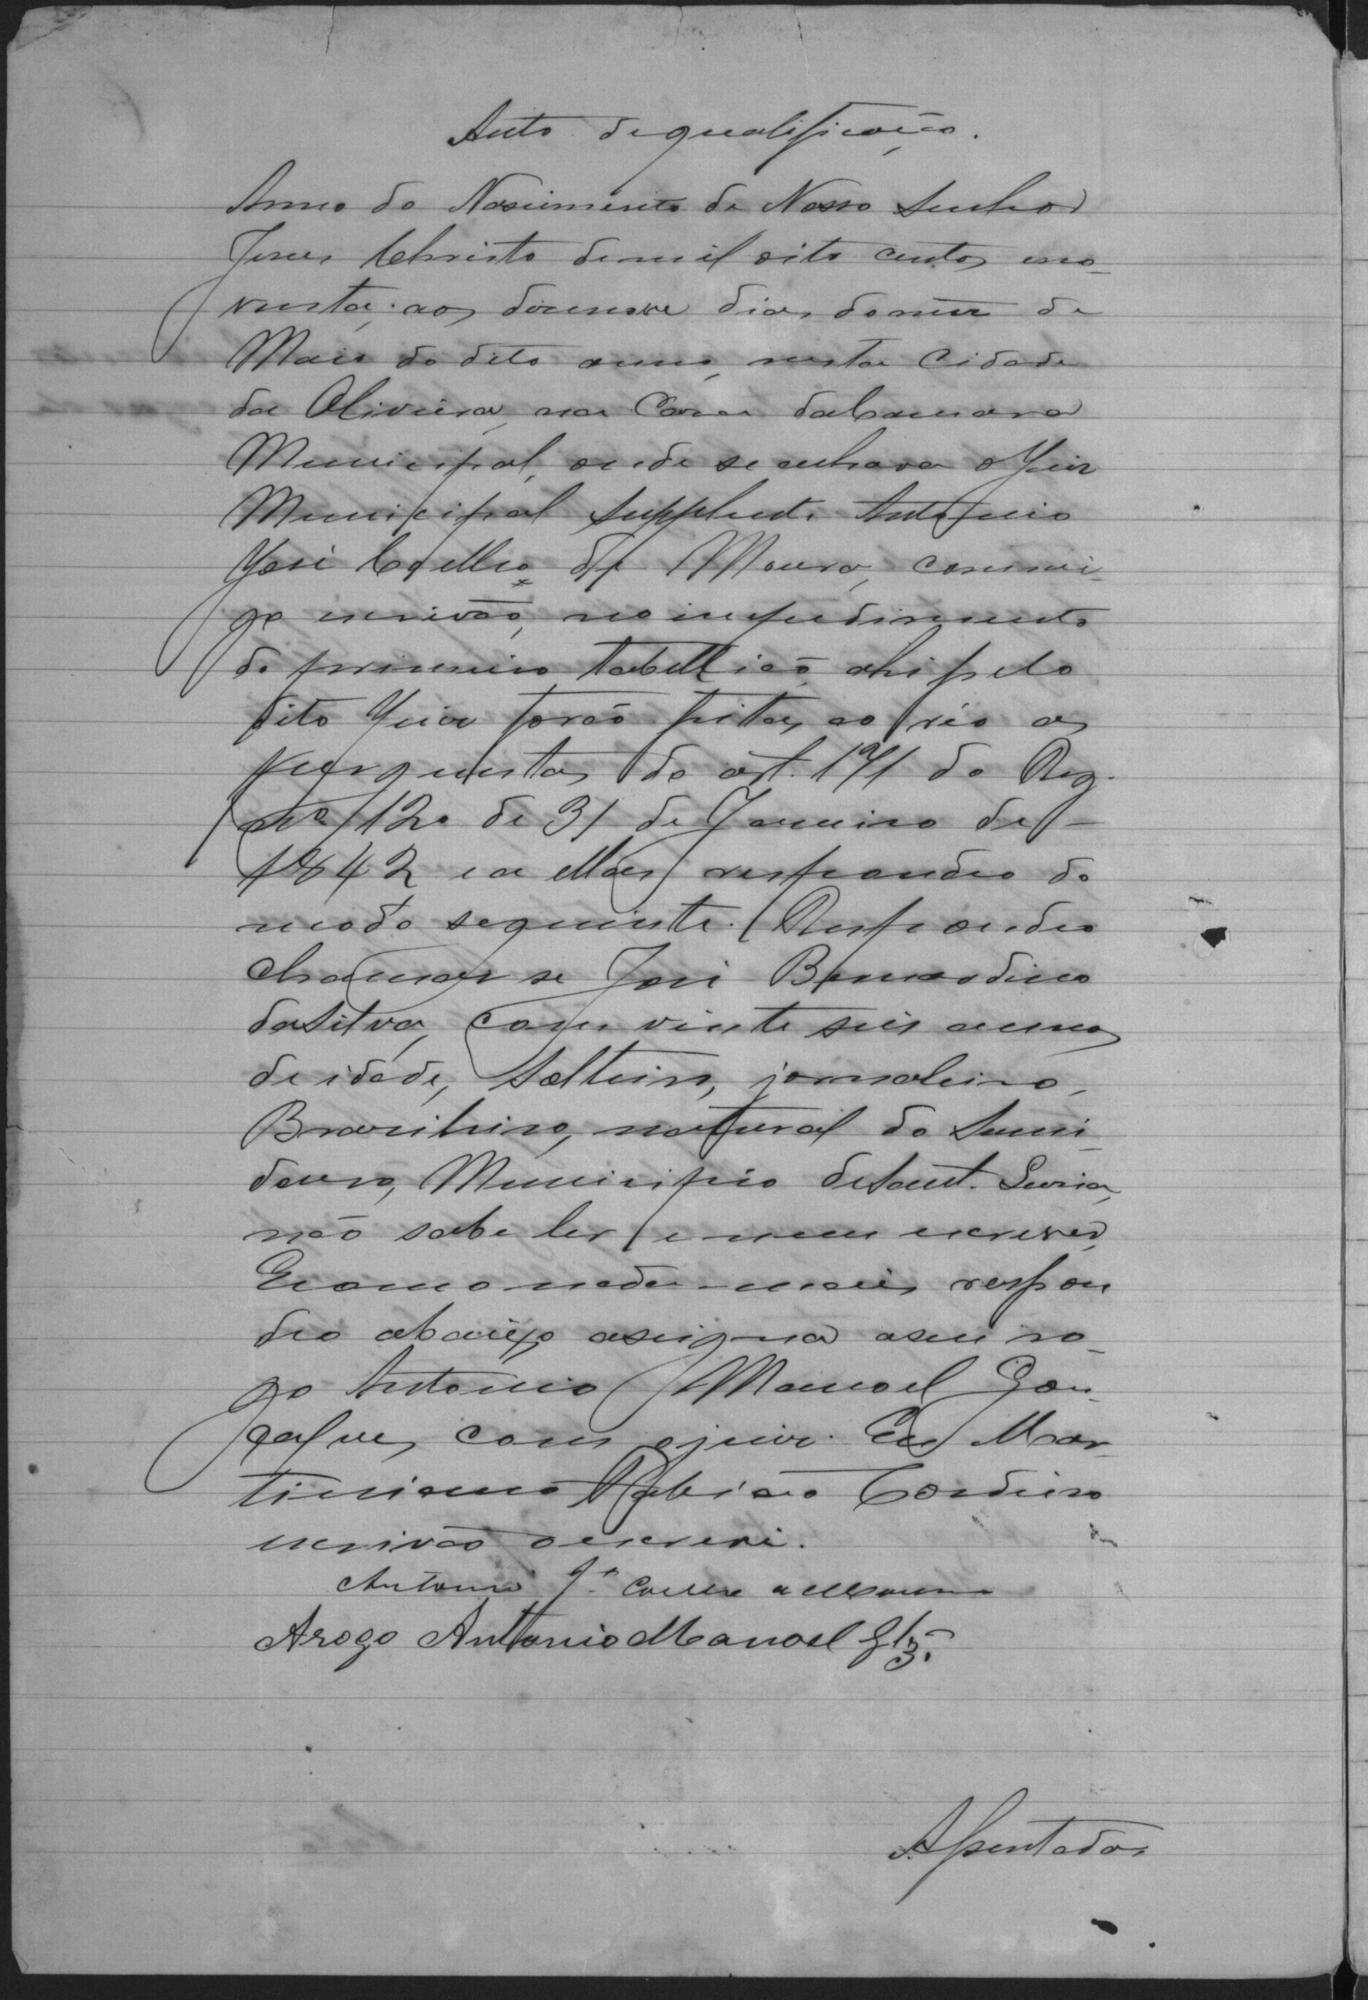 Auto de qualificação.
Anno do Nascimento de Nosso Senhor
Jesus Christo de mil oito centos e no-
venta, aos desenove dias do mez de
Maio do dito anno, nesta Cidade
da Oliveira, na Casa da Camara
Municipal, onde se achava o Juiz
Municipal Supplente Antonio
José Coelho de Moura, commi-
go escrivão, no impedimento
do primeiro tabellião, ahi pelo
dito Juiz forão feitas ao réo as
perguntas do art. 171 do Reg.
nº 120 de 31 de Janeiro de
1842 e a ellas respondeo do
modo seguinte. Respondeo
chamar se José Bernardino
da Silva, com vinte seis annos
de idade, Solteiro, jornaleiro,
Brasileiro, natural do Sumi-
douro, Municipio de Sant. Luzia,
não sabe ler e nem escrever,
E como nada mais respon
deo abaixo assigna a seu ro-
go Antonio Manoel Gon-
çalves, com o juiz. Eu Mar
tiniano Cordeiro
escrivão o escrevi.
Antonio Je Coelho de Moura
Arogo Antonio Manoel Glz.
Assentados